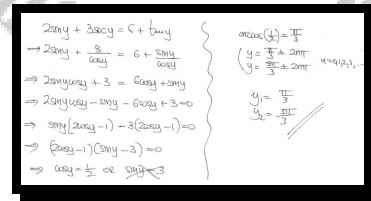 2siny + 3secy = 6 + tany
→ 2siny + 3/cosy = 6 + siny/cosy
⇒ 2sinycosy + 3 = 6cosy + siny
⇒ 2sinycosy - siny - 6cosy + 3 = 0
⇒ siny[2cosy - 1] - 3(2cosy - 1) = 0
⇒ (2cosy - 1)(siny - 3) = 0
⇒ cosy = 1/2 or siny = 3
arccos(1/2) = π/3
( y = π/3 ± 2nπ
( y = 5π/3 ± 2nπ n = 0,1,2,3,...
y₁ = π/3
y₂ = 5π/3